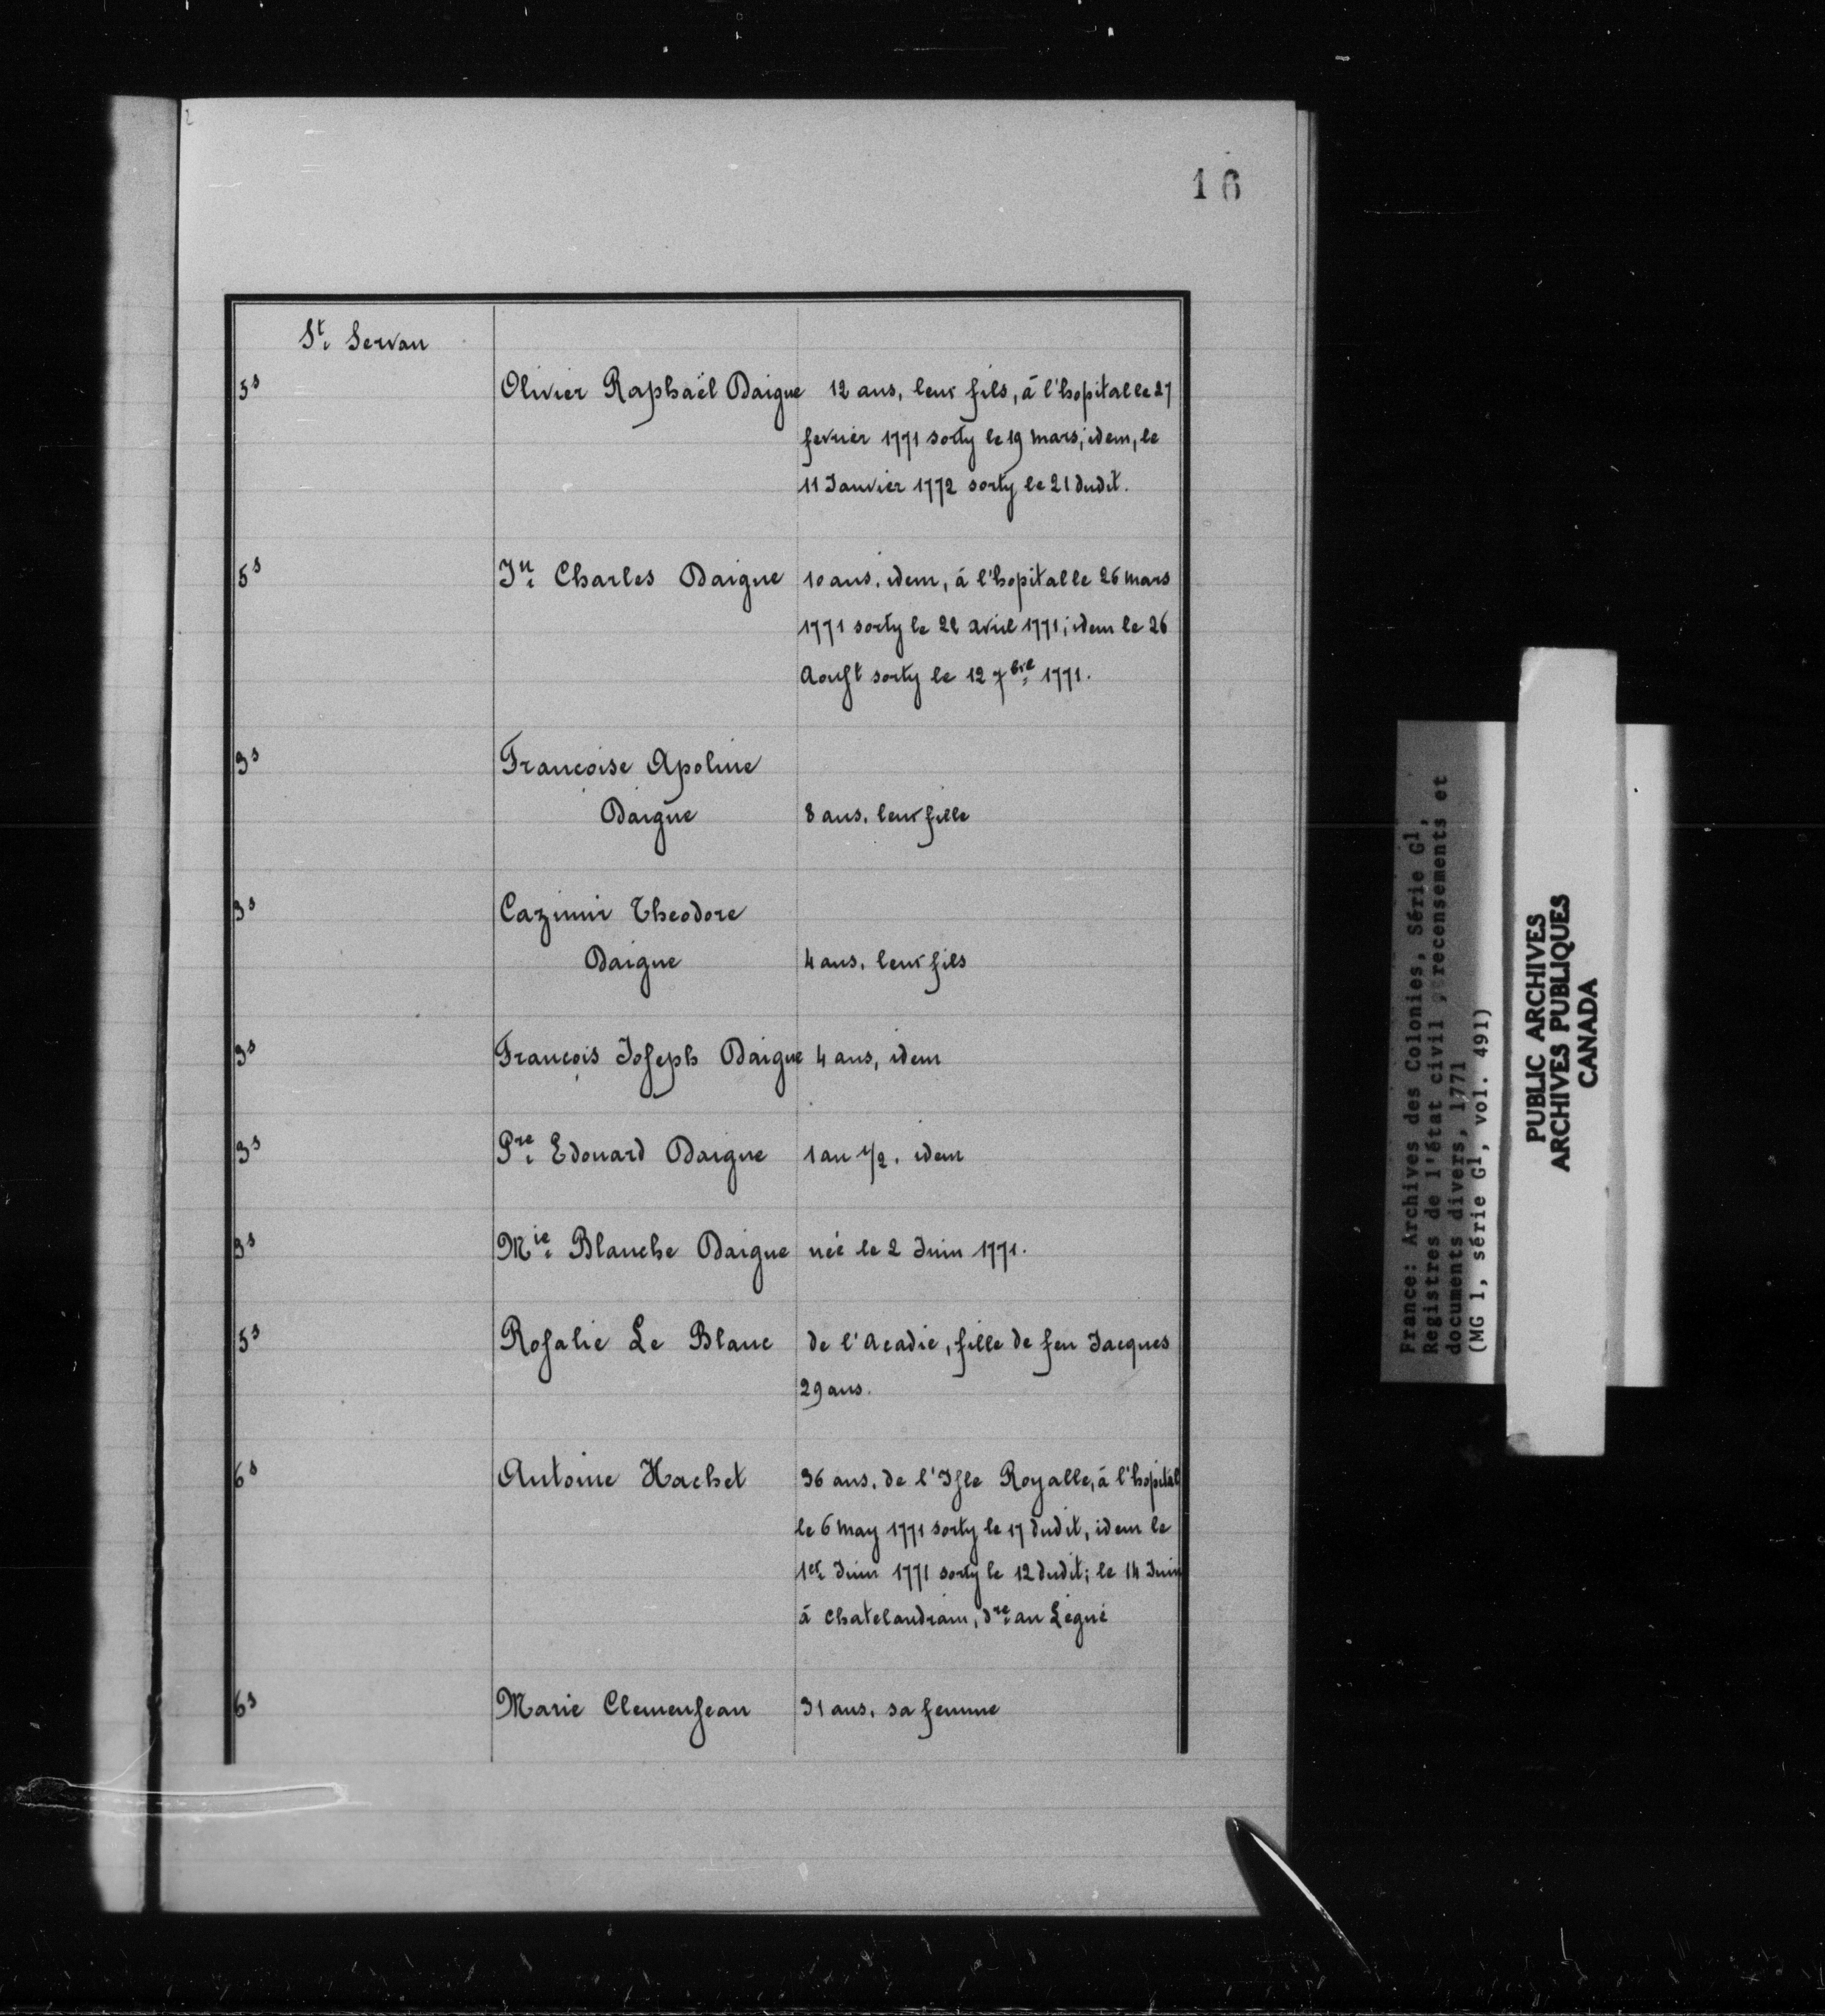 16
St. Servan
5s Olivier Raphaël Daigue 12 ans, leur fils, à l'hopital le 27
fevrier 1771 sorty le 19 mars; idem, le
11 Janvier 1772 sorty le 21 dudit.
5s Jn. Charles Daigue 10 ans. idem, à l'hopital le 26 mars
1771 sorty le 22 avril 1771; idem le 26
Aoust sorty le 12 7bre 1771.
3s Francoise Apoline
Daigue 8 ans. leur fille
3s Cazimir Theodore
Daigue 4 ans. leur fils
3s François Joseph Daigue 4 ans, idem
3s Pre. Edouard Daigue 1 an 1/2. idem
3s Mie. Blanche Daigue née le 2 Juin 1771.
5s Rosalie Le Blanc de l'Acadie, fille de feu Jacques
29 ans.
6s Antoine Hachet 36 ans. de l'Isle Royalle, à l'hopital
le 6 may 1771 sorty le 17 dudit, idem le
1er. Juin 1771 sorty le 12 dudit; le 14 Juin
à Chatelaudrain, dre. au Légué
6s Marie Clemenseau 31 ans. sa femme
France: Archives des Colonies, Série G1,
Registres de l'état civil, recensements et
documents divers, 1771
(MG 1, série G1, vol. 491)
PUBLIC ARCHIVES
ARCHIVES PUBLIQUES
CANADA